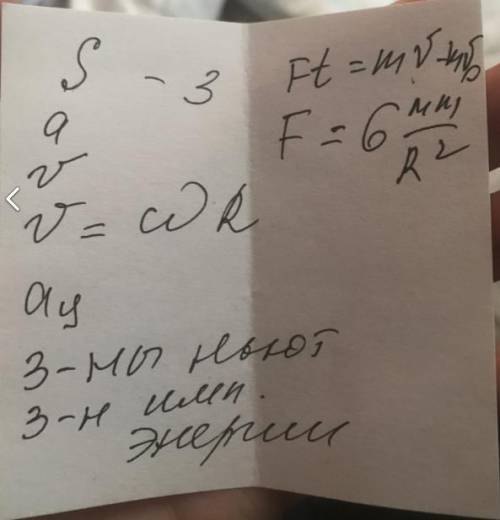 S - 3
a
v
v = ωR
aц
З-ны Ньют
З-н имп.
энергии
Ft = mv - mv₀
F = G Mm/R²